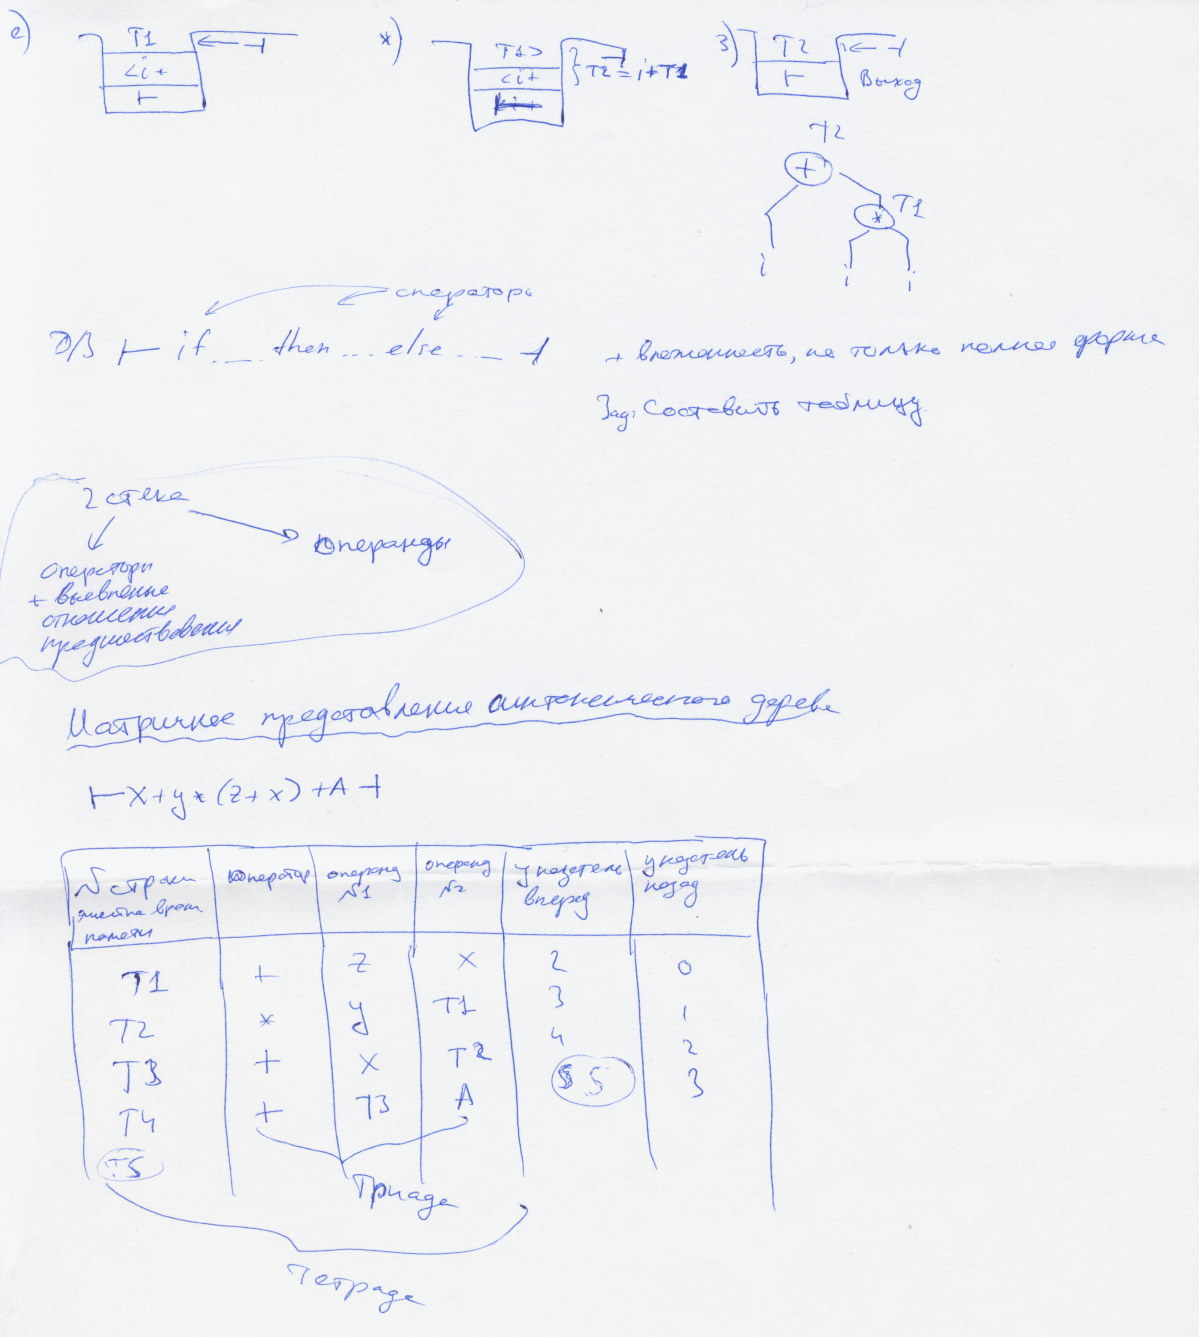 е) T1 ← ⊣
<i+
⊢
ж) T1> ⊣
<i+ } T2 = i+T1
з) T2 ← ⊣
⊢ Выход
T2
+
* T1
i i i
операторы
Д/З ⊢ if ... then ... else ... ⊣ + вложенность, не только полная форма
Зад: Составить таблицу
2 стека
Операнды
операторы
+ выявленные
отношения
предшествования
Матричное представление синтаксического дерева
⊢ X+y*(z+x)+A ⊣
№ строки оператор операнд №1 операнд №2 указатель вперед указатель назад
памяти
T1 + z x 2 0
T2 * y T1 3 1
T3 + x T2 4 2
T4 + T3 A 5 3
T5
Триада
Тетрада